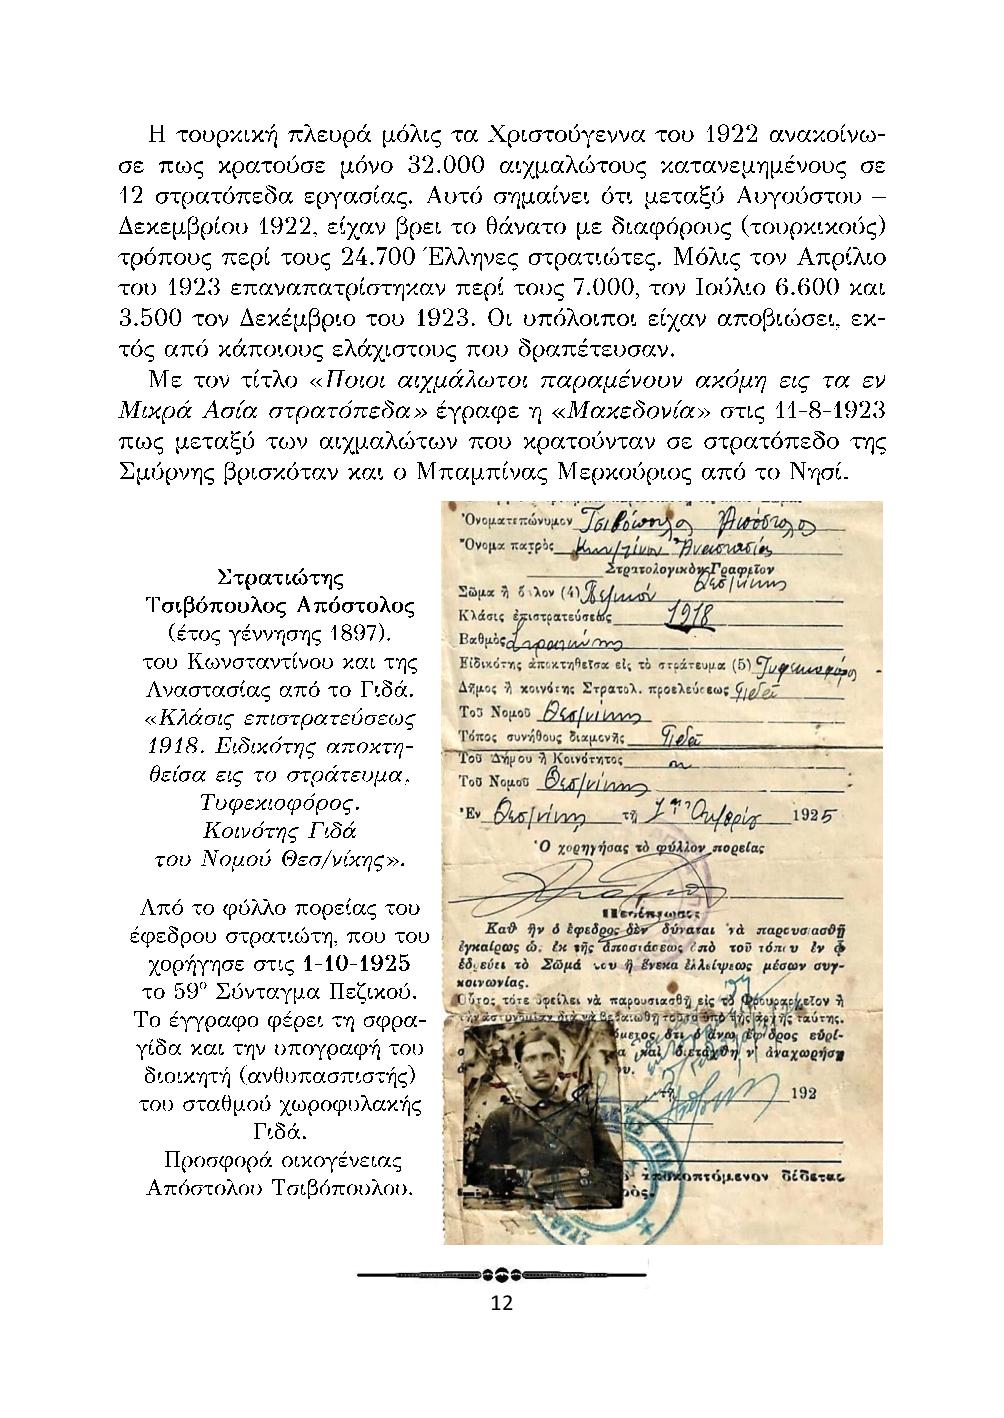 Η τουρκική πλευρά μόλις τα Χριστούγεννα του 1922 ανακοίνω-
σε πως κρατούσε μόνο 32.000 αιχμαλώτους κατανεμημένους σε
12 στρατόπεδα εργασίας. Αυτό σημαίνει ότι μεταξύ Αυγούστου –
Δεκεμβρίου 1922, είχαν βρει το θάνατο με διαφόρους (τουρκικούς)
τρόπους περί τους 24.700 Έλληνες στρατιώτες. Μόλις τον Απρίλιο
του 1923 επαναπατρίστηκαν περί τους 7.000, τον Ιούλιο 6.600 και
3.500 τον Δεκέμβριο του 1923. Οι υπόλοιποι είχαν αποβιώσει, εκ-
τός από κάποιους ελάχιστους που δραπέτευσαν.
Με τον τίτλο «Ποιοι αιχμάλωτοι παραμένουν ακόμη εις τα εν
Μικρά Ασία στρατόπεδα» έγραφε η «Μακεδονία» στις 11-8-1923
πως μεταξύ των αιχμαλώτων που κρατούνταν σε στρατόπεδο της
Σμύρνης βρισκόταν και ο Μπαμπίνας Μερκούριος από το Νησί.
Στρατιώτης
Τσιβόπουλος Απόστολος
(έτος γέννησης 1897),
του Κωνσταντίνου και της
Αναστασίας από το Γιδά.
«Κλάσις επιστρατεύσεως
1918. Ειδικότης αποκτη-
θείσα εις το στράτευμα,
Τυφεκιοφόρος.
Κοινότης Γιδά
του Νομού Θεσ/νίκης».
Από το φύλλο πορείας του
έφεδρου στρατιώτη, που του
χορήγησε στις 1-10-1925
το 59º Σύνταγμα Πεζικού.
Το έγγραφο φέρει τη σφρα-
γίδα και την υπογραφή του
διοικητή (ανθυπασπιστής)
του σταθμού χωροφυλακής
Γιδά.
Προσφορά οικογένειας
Απόστολου Τσιβόπουλου.
Ὀνοματεπώνυμον Τσιβόπουλος Ἀπόστολος
Ὄνομα πατρὸς Ἀναστασίας
Στρατολογικὸν Γραφεῖον Θεσ/νίκης
Σῶμα ἢ ὅπλον (4) Πεζικόν
Κλάσις ἐπιστρατεύσεως 1918
Βαθμὸς Στρατιώτης
Εἰδικότης ἀποκτηθεῖσα εἰς τὸ στράτευμα (5) Τυφεκιοφόρος
Δῆμος ἢ κοινότης Στρατολ. προελεύσεως Γιδᾶ
Τοῦ Νομοῦ Θεσ/νίκης
Τόπος συνήθους διαμονῆς Γιδᾶ
Τοῦ Δήμου ἢ Κοινότητος
Τοῦ Νομοῦ Θεσ/νίκης
Ἐν Θεσ/νίκῃ τῇ 1ῃ Ὀκτωβρίου 1925
Ὁ χορηγήσας τὸ φύλλον πορείας
Καθ' ἣν ὁ ἔφεδρος δὲν δύναται νὰ παρουσιασθῇ
ἐγκαίρως ἐκ τῆς ἀποστάσεως ἀπὸ τοῦ τόπου ἐν ᾧ
ἑδρεύει τὸ Σῶμά του ἢ ἕνεκα ἐλλείψεως μέσων συγ-
κοινωνίας.
Οὗτος τότε ὀφείλει νὰ παρουσιασθῇ εἰς τὸ Φρουραρχεῖον ἢ
τὴν ἀστυνομίαν διὰ νὰ βεβαιωθῇ τοῦτο ὑπὸ τῆς ἀρχῆς ταύτης.
ὅτι ὁ ἄνω ἔφεδρος εὑρί-
καὶ διετάχθη ν' ἀναχωρήσῃ
192
ἀποκοπτόμενον δίδεται
12